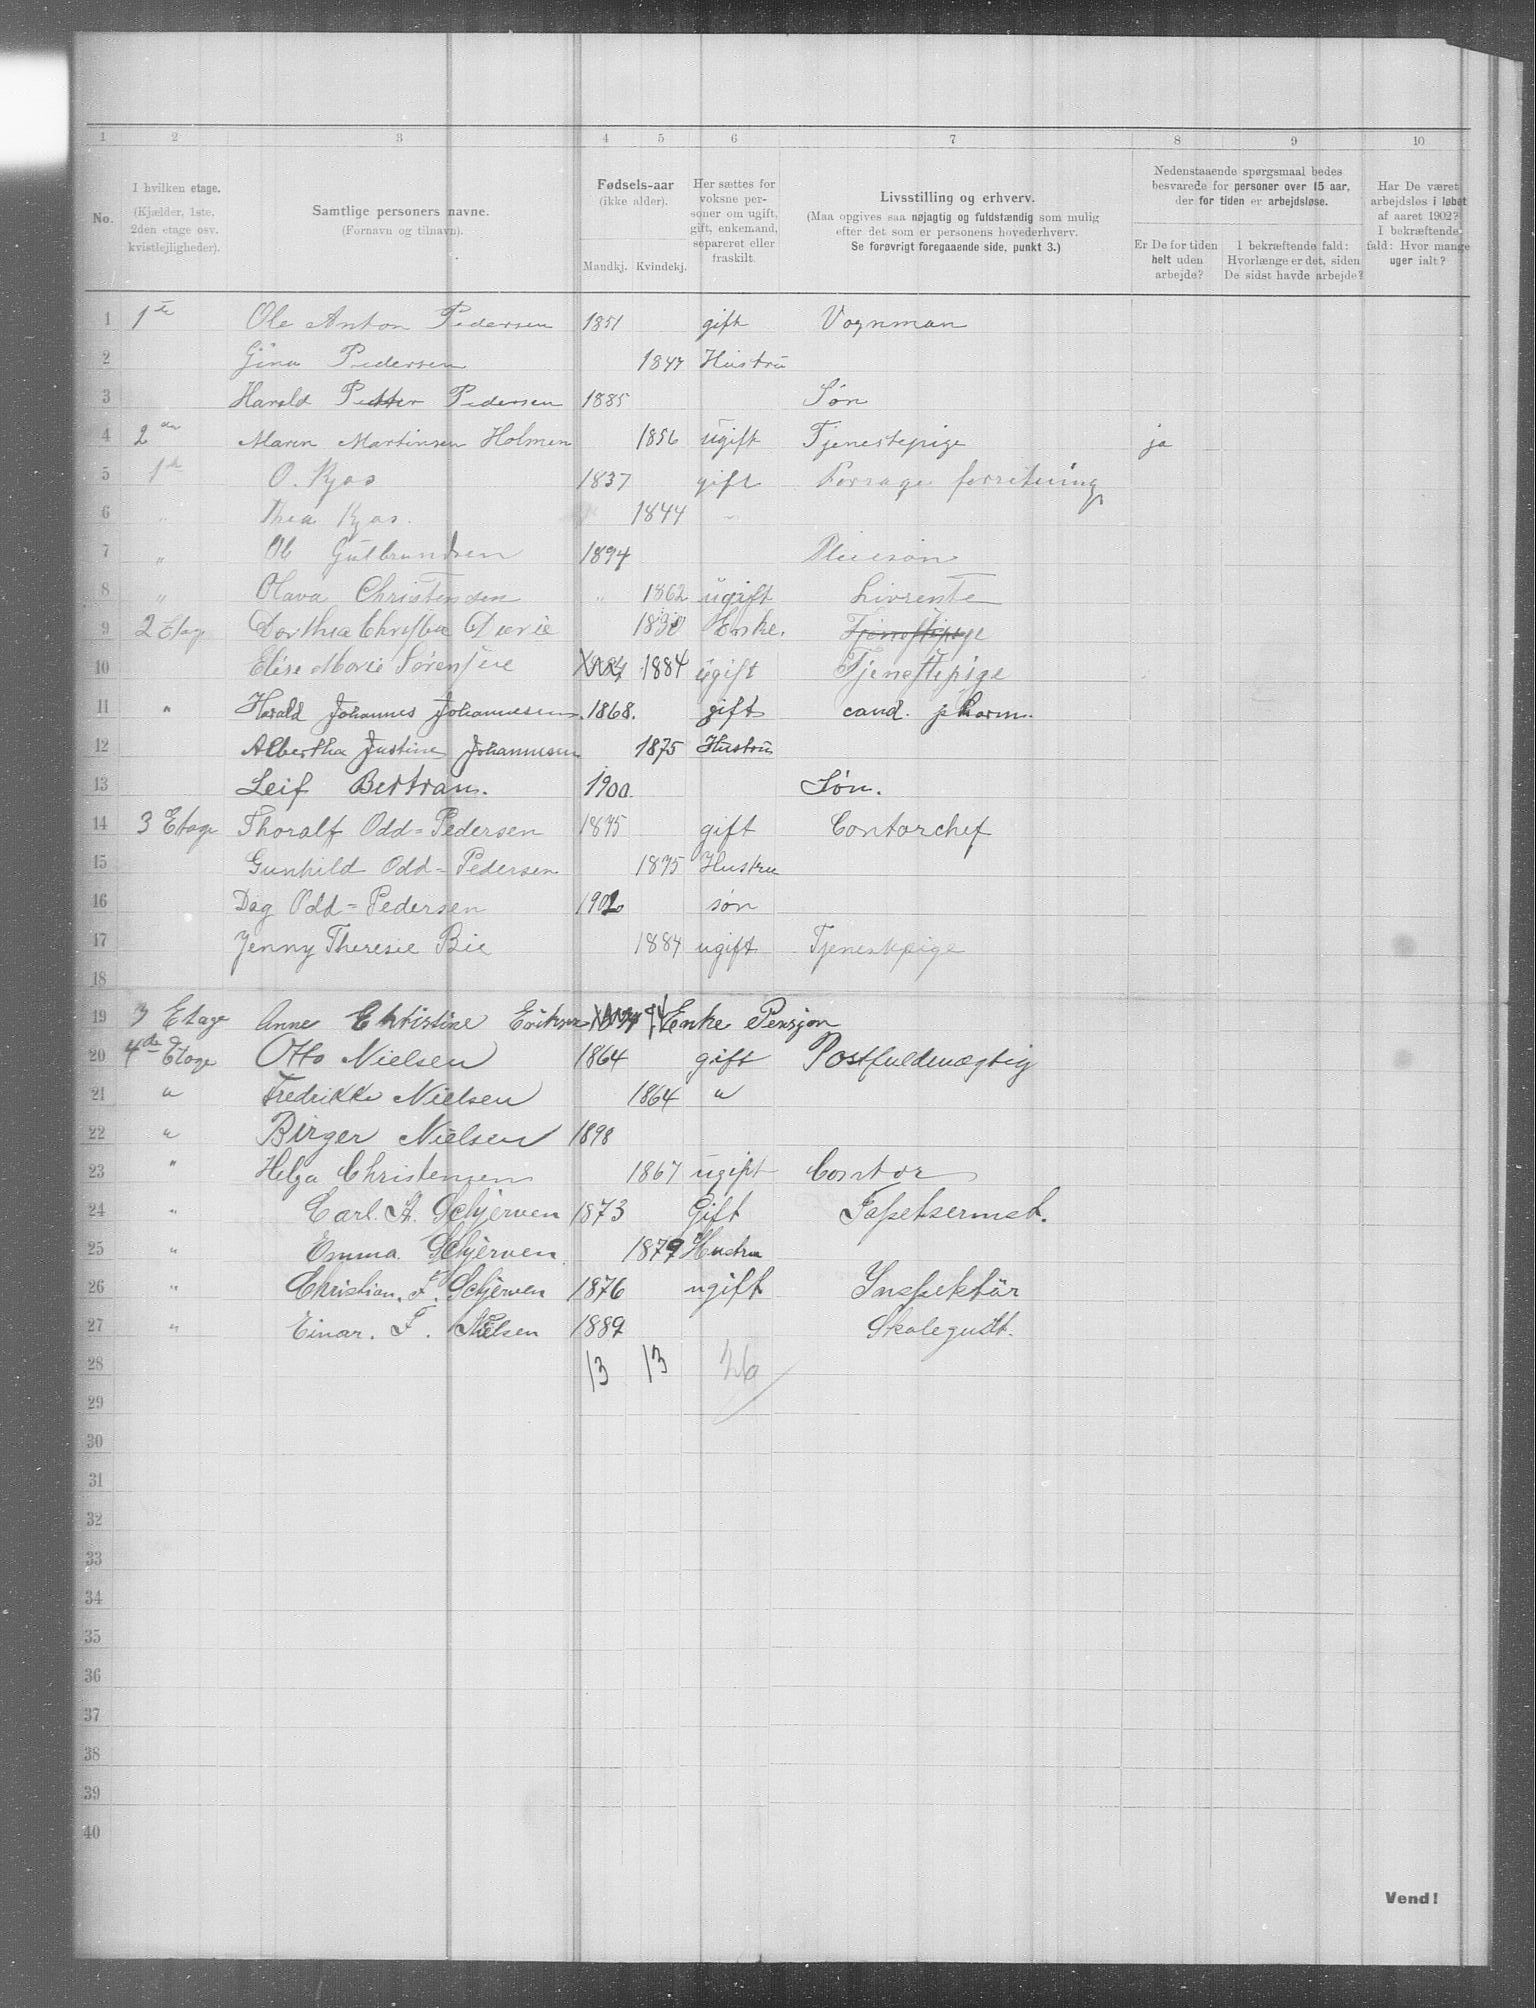 1 2 3 4 5 6 7 8 9 10
No.
I hvilken etage.
(Kjælder, 1ste, 2den etage osv. kvistlejligheder).
Samtlige personers navne.
(Fornavn og tilnavn).
Fødsels-aar
(ikke alder).
Mandkj. Kvindekj.
Her sættes for voksne personer om ugift, gift, enkemand, separeret eller fraskilt.
Livsstilling og erhverv.
(Maa opgives saa nøjagtig og fuldstændig som mulig
efter det som er personens hovederhverv.
Se forøvrigt foregaaende side, punkt 3.)
Nedenstaaende spørgsmaal bedes
besvarede for personer over 15 aar,
der for tiden er arbejdsløse.
Er De for tiden helt uden arbejde?
I bekræftende fald: Hvorlænge er det, siden De sidst havde arbejde?
Har De været arbejdsløs i løbet af aaret 1902? I bekræftende fald: Hvor mange uger ialt?
1 1te Ole Anton Pedersen 1851 gift Vognman
2 Gina Pedersen 1847 Hustru
3 Harald Petter Pedersen 1885 Søn
4 2den Maren Martinsen Holmen 1856 ugift Tjenestepige ja
5 1te O. Ryas 1837 gift Forrage forretning
6 " Thea Ryas. 1844 "
7 " Ole Gulbrandsen 1894 Pleiesøn
8 " Olava Christensen " 1862 ugift Livrente
9 2 Etage Dorthea 1830 Enke. Tjenestepige
10 Elise Marie Sørensen 1884 ugift Tjenestepige
11 " Harald Johannes Johannesen. 1868. gift cand. pharm.
12 Albertha Justine Johannesen 1875 Hustru
13 Leif Bertram. 1900. Søn.
14 3 Etage Thoralf Odd-Pedersen 1875 gift Contorchef
15 Gunhild Odd-Pedersen 1875 Hustru
16 Dag Odd-Pedersen 1902 søn
17 Jenny Theresie Bie 1884 ugift Tjenestepige
18
19 3 Etage Anne Christine Eriksen 44 Enke Pensjon
20 4de Etage Otto Nielsen 1864 gift Postfuldmægtig
21 " Fredrikke Nielsen 1864 "
22 " Birger Nielsen 1898
23 " Helga Christensen 1867 ugift Contor
24 " Carl. A. Schjerven 1873 Gift Tapetsermst.
25 " Emma. Schjerven 1879 Hustru
26 " Christian. F. Schjerven 1876 ugift Inspektör
27 " Einar. F. Nielsen 1889 Skolegutt.
28 13 13 26
29
30
31
32
33
34
35
36
37
38
39
40
Vend!